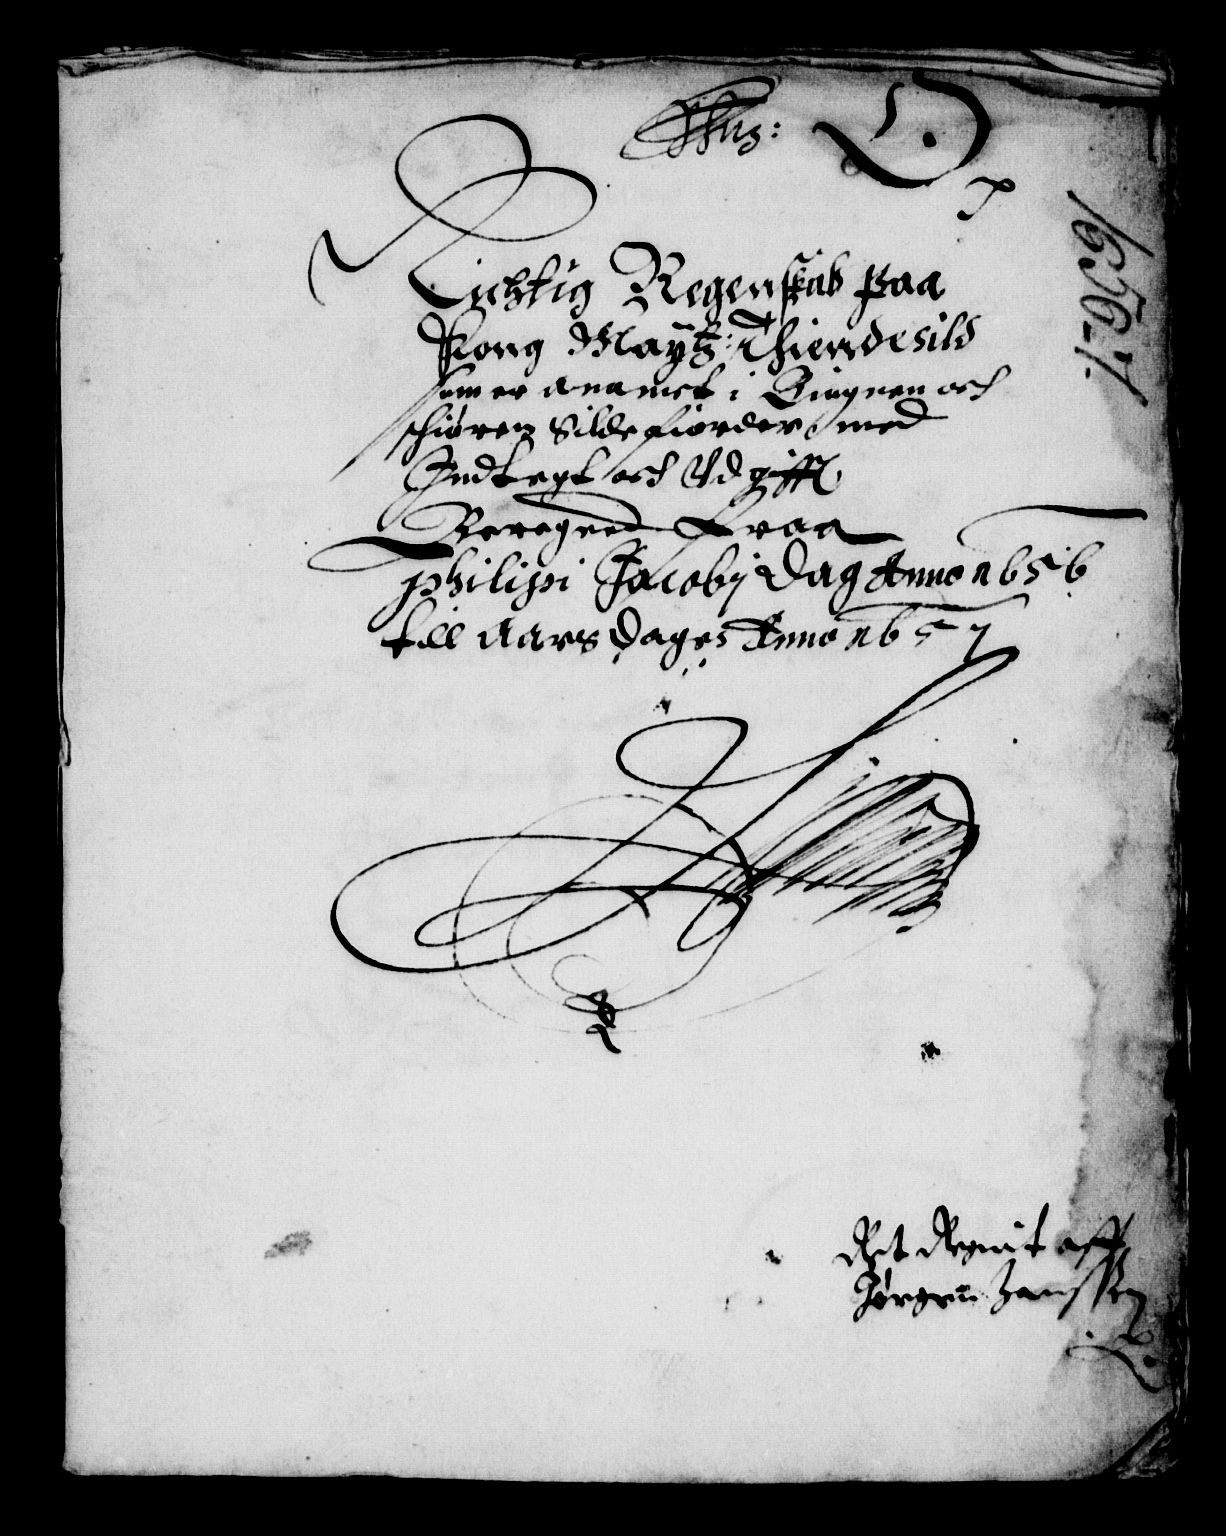 Richtig Regenskab paa
Kong Maytz: Thiendesild
som er anamet i Bingnen och
schiøren Silde fiorder, med
Indtegt och Vdgifft
Beregnet Fraa
Philipi Jacobj Dag Anno 1656
till Aars Dages Anno 1657
1656-7.
Ret Regnit aff
Jørgen Janssen